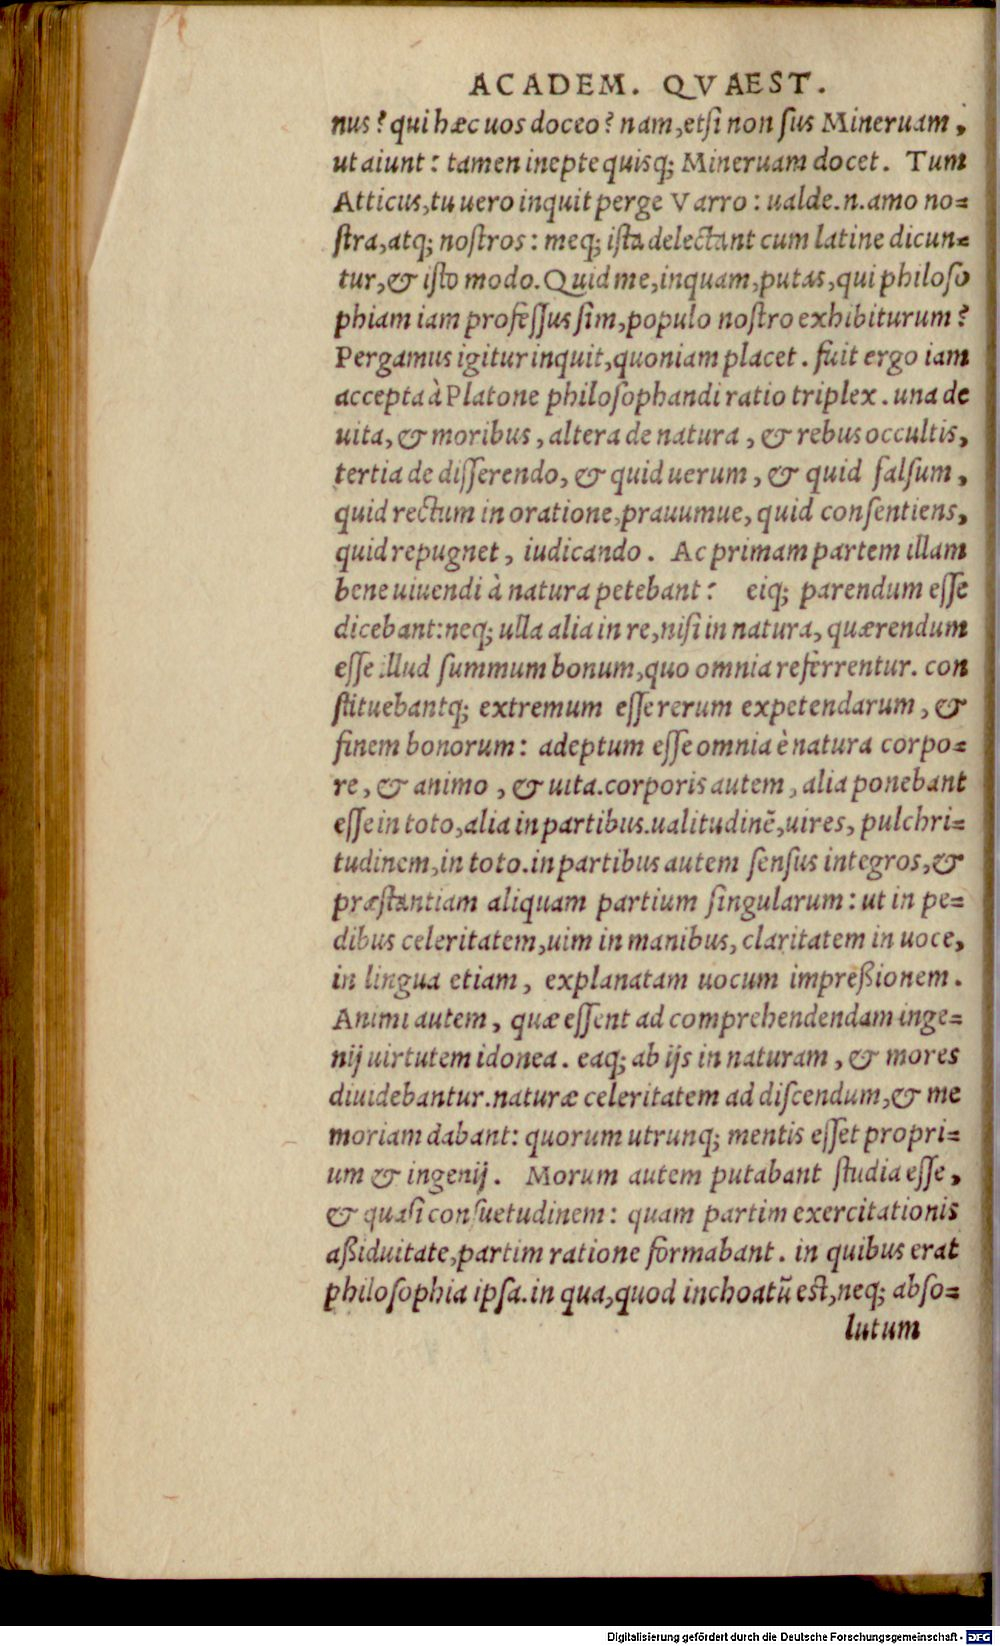 ACADEM. QVAEST.
nus? qui hæc uos doceo? nam, etſi non ſus Mineruam,
ut aiunt: tamen inepte quisq; Mineruam docet. Tum
Atticus, tu uero inquit perge Varro: ualde.n.amo no=
ſtra, atq; noſtros: meq; iſta delectant cum latine dicun=
tur, & iſto modo. Quid me, inquam, putas, qui philoſo
phiam iam profeſſus ſim, populo noſtro exhibiturum?
Pergamus igitur inquit, quoniam placet. fuit ergo iam
accepta à Platone philoſophandi ratio triplex. una de
uita, & moribus, altera de natura, & rebus occultis,
tertia de diſſerendo, & quid uerum, & quid falſum,
quid rectum in oratione, prauumue, quid conſentiens,
quid repugnet, iudicando. Ac primam partem illam
bene uiuendi à natura petebant: eiq; parendum eſſe
dicebant: neq; ulla alia in re, niſi in natura, quærendum
eſſe illud ſummum bonum, quo omnia referrentur. con
ſtituebantq; extremum eſſe rerum expetendarum, &
finem bonorum: adeptum eſſe omnia è natura corpo=
re, & animo, & uita. corporis autem, alia ponebant
eſſe in toto, alia in partibus. ualitudinē, uires, pulchri=
tudinem, in toto. in partibus autem ſenſus integros, &
præſtantiam aliquam partium ſingularum: ut in pe=
dibus celeritatem, uim in manibus, claritatem in uoce,
in lingua etiam, explanatam uocum impreßionem.
Animi autem, quæ eſſent ad comprehendendam inge=
nij uirtutem idonea. eaq; ab ijs in naturam, & mores
diuidebantur. naturæ celeritatem ad diſcendum, & me
moriam dabant: quorum utrunq; mentis eſſet propri=
um & ingenij. Morum autem putabant ſtudia eſſe,
& quaſi conſuetudinem: quam partim exercitationis
aßiduitate, partim ratione formabant. in quibus erat
philoſophia ipſa. in qua, quod inchoatũ eſt, neq; abſo=
lutum
Digitalisierung gefördert durch die Deutsche Forschungsgemeinschaft - DFG